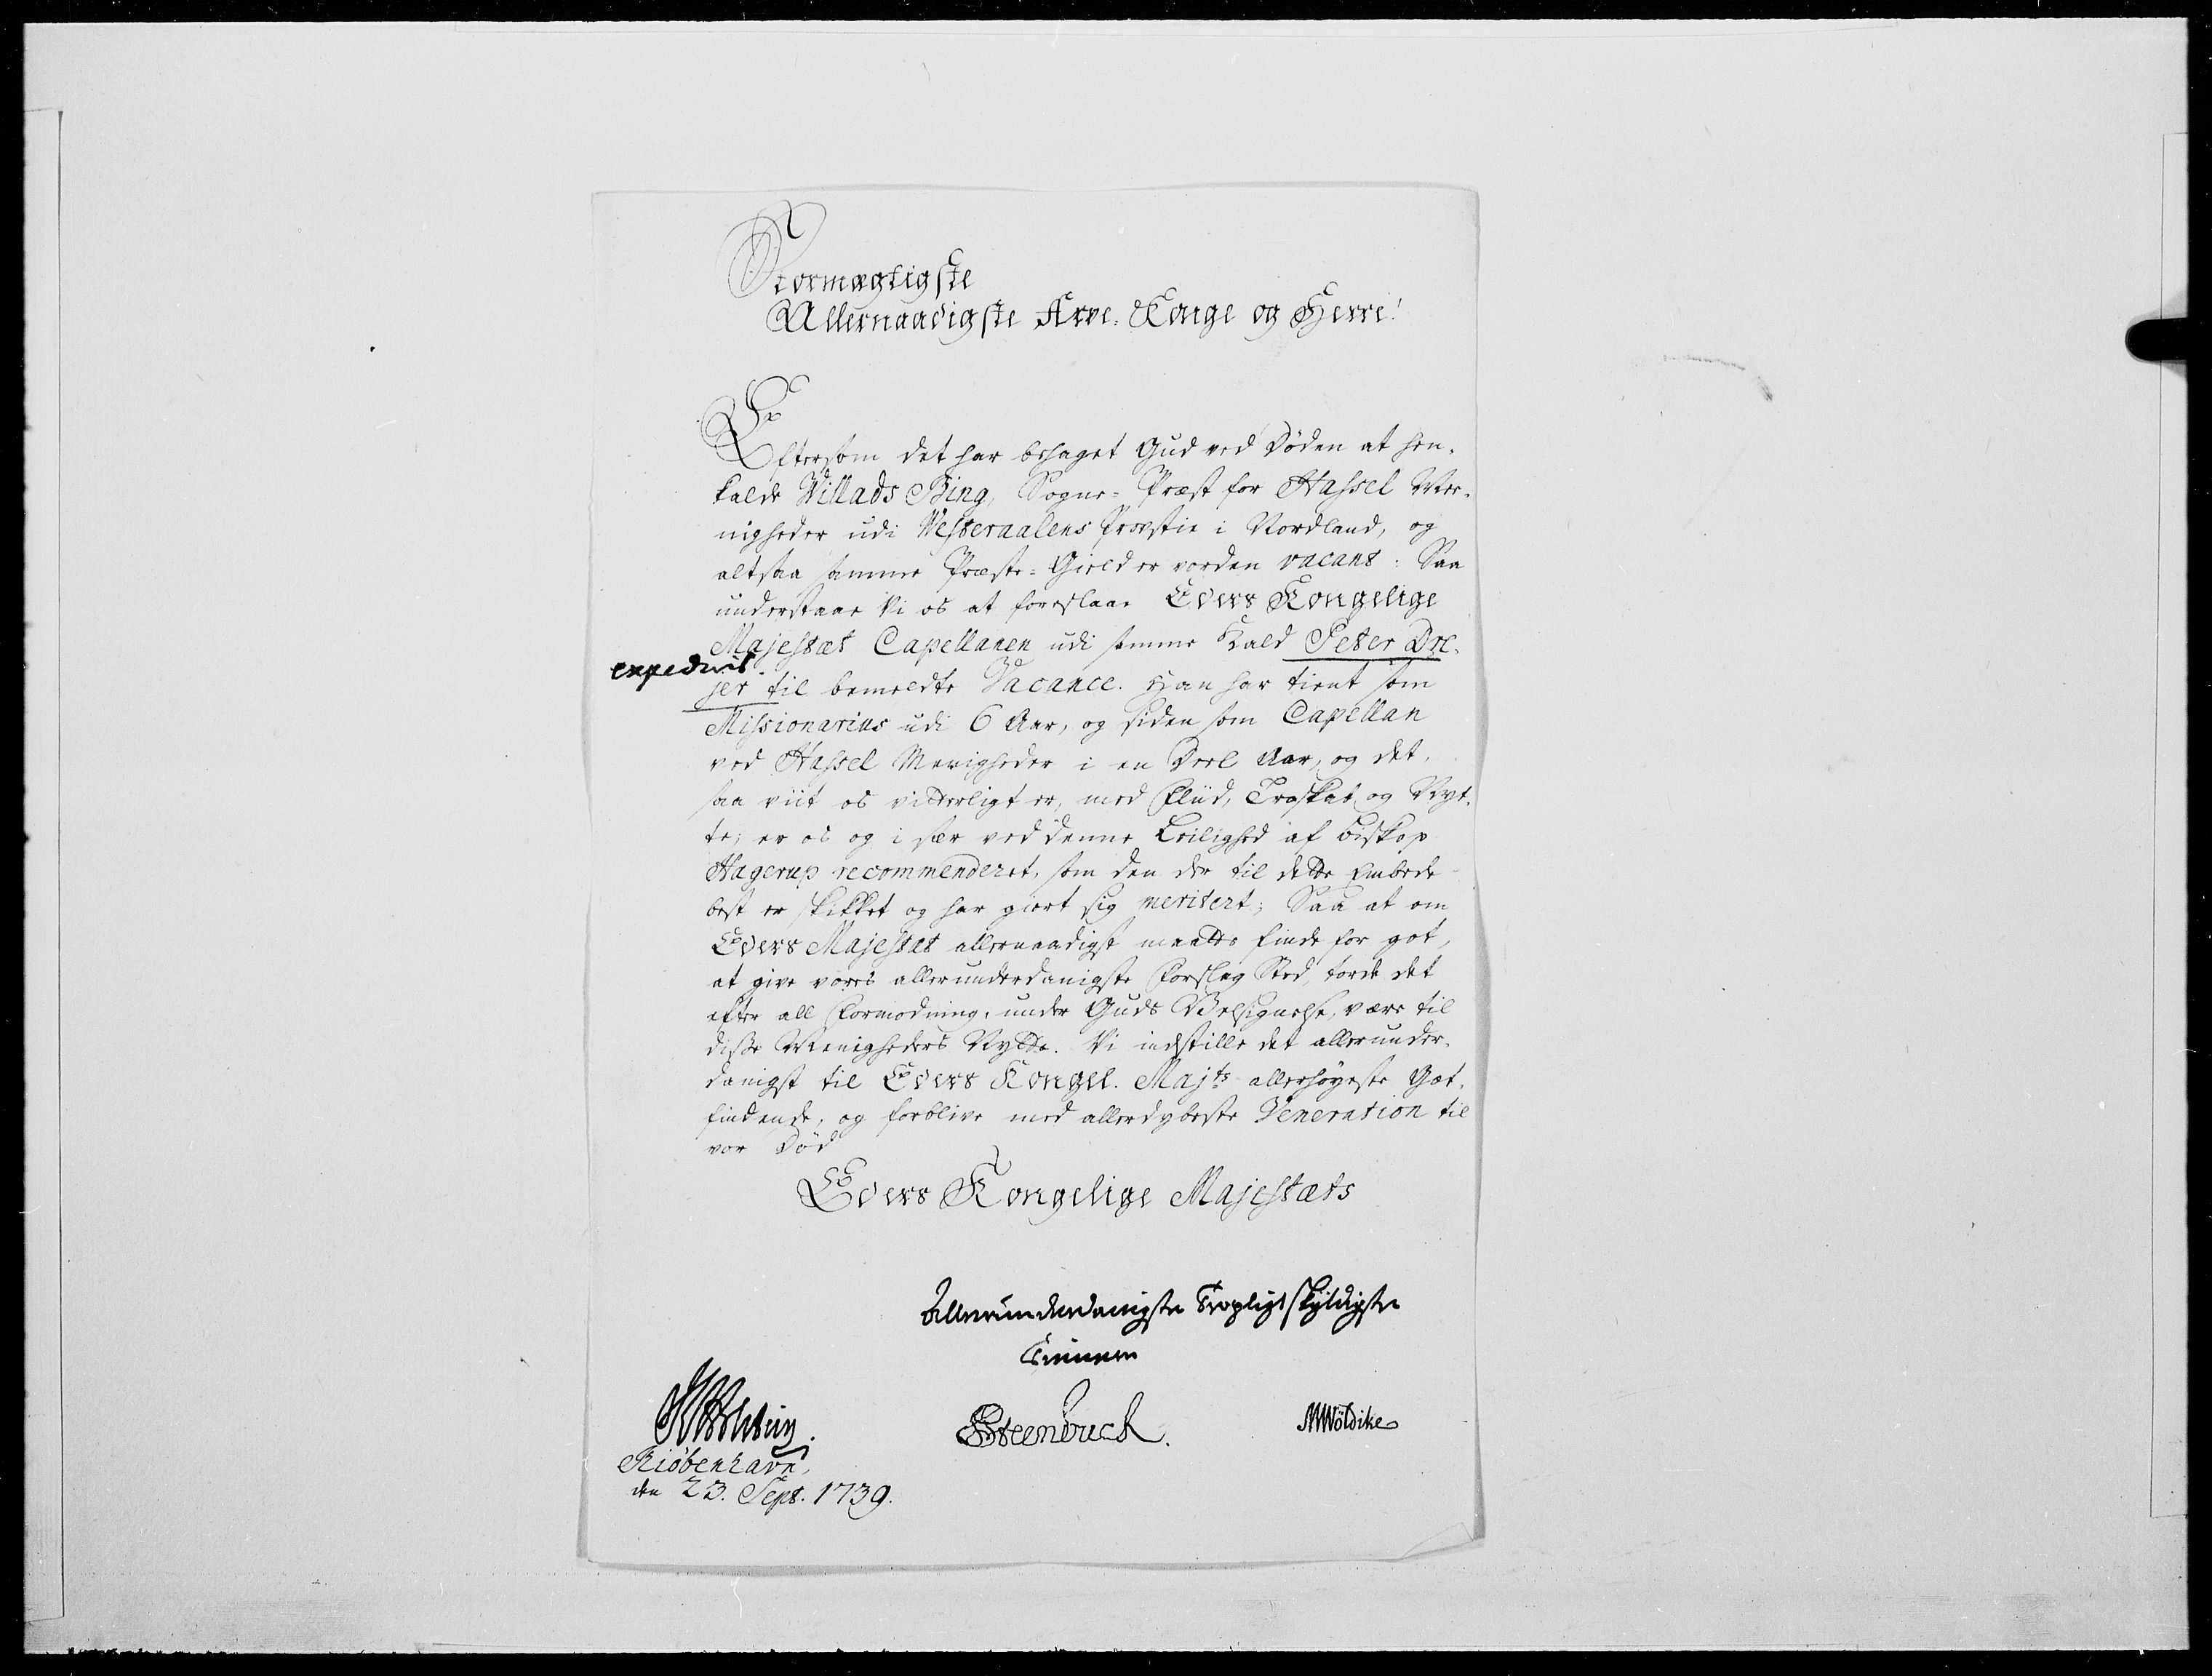 Stormægtigste
Allernaadigste Arve-Konge og Herre!
Eftersom det har behaget Gud ved Døden at hen-
kalde Willads Bing, Sogne-Præst for Hassel Me-
nigheder udi Westeraalens Provstie i Nordland, og
altsaa samme Præste-Gield er vorden vacant: Saa
understaae Vi os at foreslaae Eders Kongelige
Majestæt Capellanen udi samme Kald Peter Dre-
expedivit.
jer til bemeldte Vacance. Han har tient som
Missionarius udi 6 Aar, og siden som Capellan
ved Hassel Menigheder i en Deel Aar, og det,
saa viit os vitterligt er, med Fliid, Troskab og Nyt-
te; er os og i sær ved denne Leilighed af Biskop
Hagerup recommenderet, som den der til dette Embede
best er skikket og har giort sig meritert; Saa at om
Eders Majestæt allernaadigst maatte finde for got,
at give vores allerunderdanigste Forslag Sted, torde det
efter all Formodning, under Guds Velsignelse, være til
disse Menigheders Nytte. Vi indstille det allerunder-
danigst til Eders Kongel. Majts allerhøyeste Got-
findende, og forblive med allerdybeste Veneration til
vor Død
Eders Kongelige Majestæts
Allerunderdanigste Tropligtskyldigste
Tiennere
JW Holstein. BSteenbuch. MWöldike
Kiøbenhavn,
den 23. Sept. 1739.